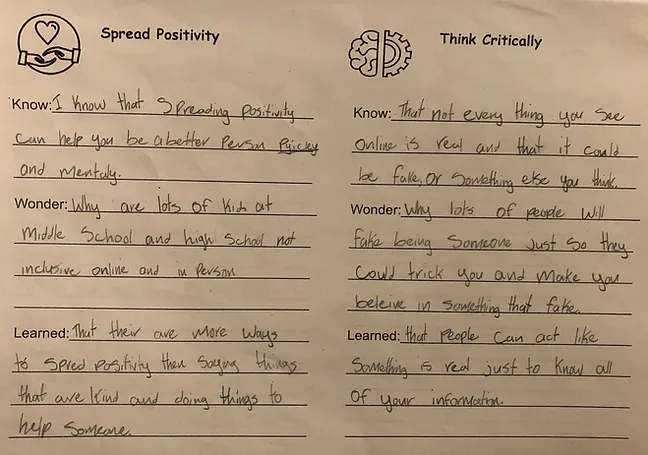 Spread Positivity
Know: I know that Spreading positivity
can help you be a better Person Pyicley
and mentaly.
Wonder: Why are lots of kids at
Middle School and high school not
inclusive online and in Person
Learned: That their are more ways
to spred positivity then saying things
that are kind and doing things to
help someone.
Think Critically
Know: That not every thing you see
online is real and that it could
be fake, or something else you think.
Wonder: Why lots of people will
fake being someone just so they
could trick you and make you
beleive in something that fake.
Learned: that people can act like
something is real just to know all
of your information.